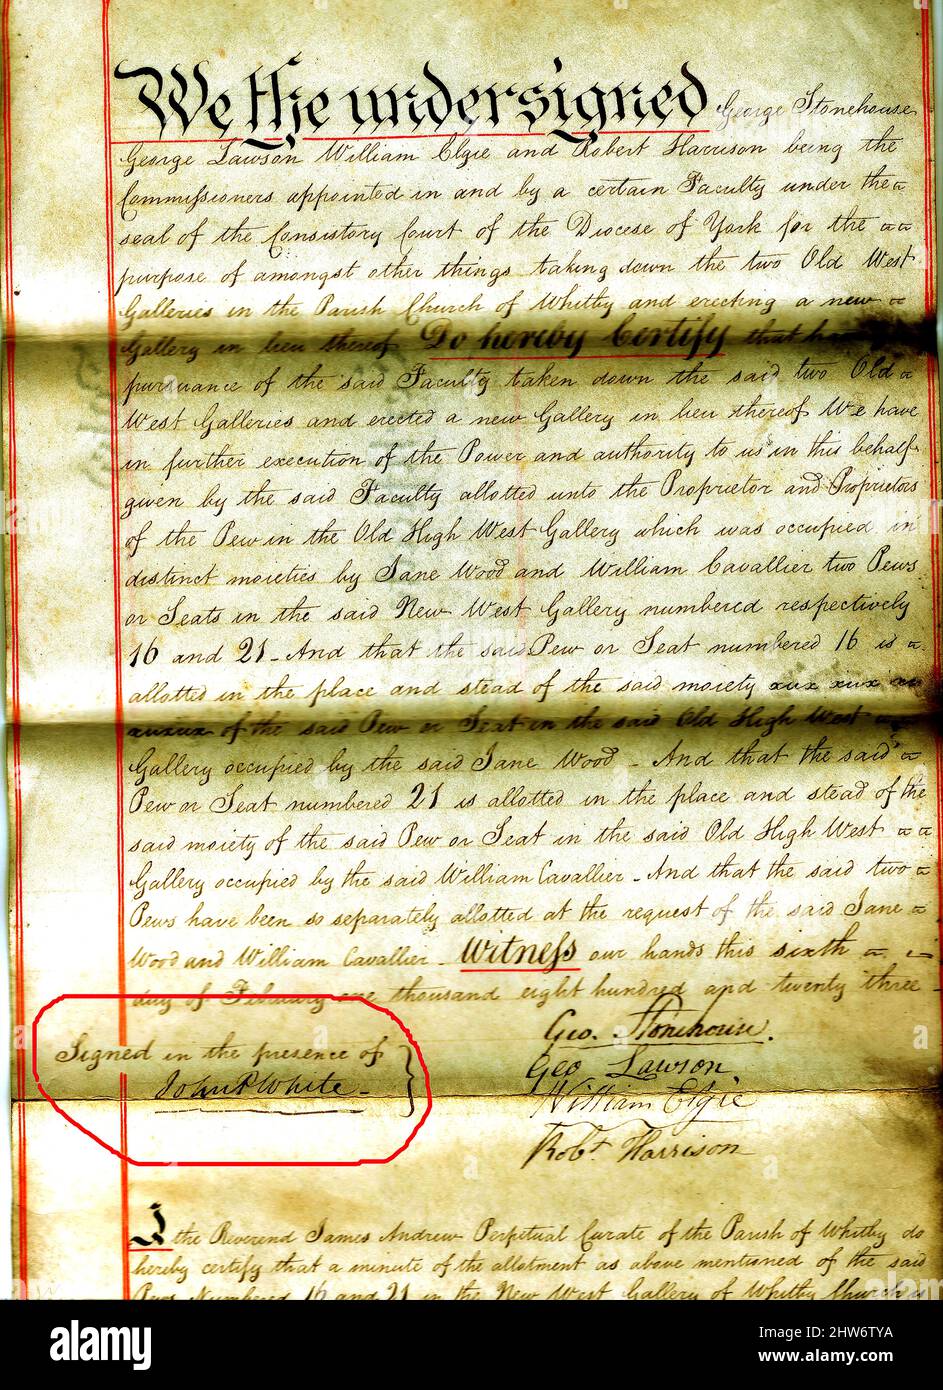 We the undersigned George Stonehouse
George Lawson William Elgie and Robert Harrison being the
Commissioners appointed in and by a certain Faculty under the
seal of the Consistory Court of the Diocese of York for the
purpose of amongst other things taking down the two Old West
Galleries in the Parish Church of Whitby and erecting a new
Gallery in lieu thereof Do hereby Certify that
pursuance of the said Faculty taken down the said two Old
West Galleries and erected a new Gallery in lieu thereof We have
in further execution of the Power and authority to us in this behalf
given by the said Faculty allotted unto the Proprietor and Proprietors
of the Pew in the Old High West Gallery which was occupied in
distinct moieties by Jane Wood and William Cavallier two Pews
or Seats in the said New West Gallery numbered respectively
16 and 21 - And that the said Pew or Seat numbered 16 is
allotted in the place and stead of the said moiety
of the said Pew or Seat in the said Old High West
Gallery occupied by the said Jane Wood - And that the said
Pew or Seat numbered 21 is allotted in the place and stead of the
said moiety of the said Pew or Seat in the said Old High West
Gallery occupied by the said William Cavallier - And that the said two
Pews have been so separately allotted at the request of the said Jane
Wood and William Cavallier - Witness our hands this sixth
day of February one thousand eight hundred and twenty three
Signed in the presence of
John P White
Geo. Stonehouse.
Geo Lawson
William Elgie
Robt Harrison
I the Reverend James Andrew Perpetual Curate of the Parish of Whitby do
hereby certify that a minute of the allotment as above mentioned of the said
Pews Numbered 16 and 21 in the New West Gallery of Whitby Church is
alamy
Image ID: 2HW6TYA
www.alamy.com